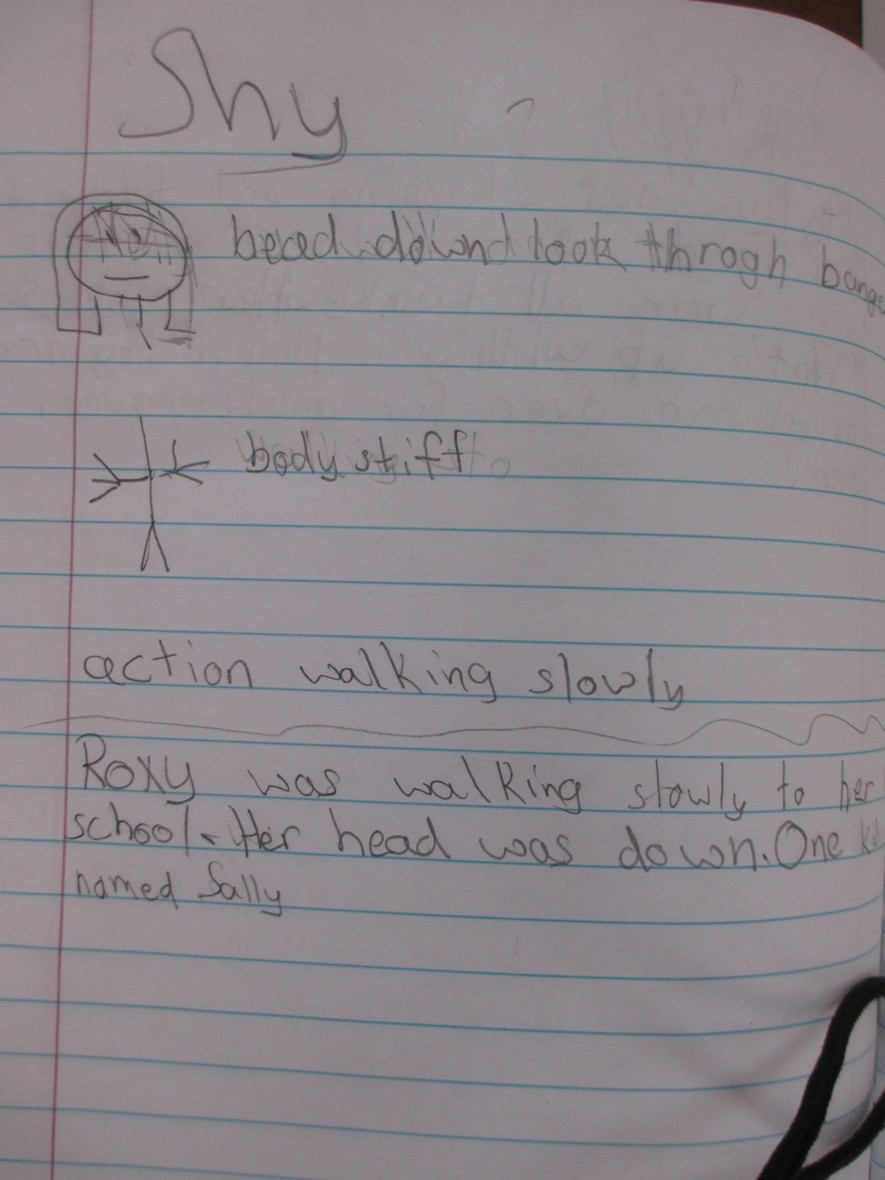 Shy
head down look throgh bangs
body stiff
action walking slowly
Roxy was walking slowly to her
school. Her head was down. One
named Sally